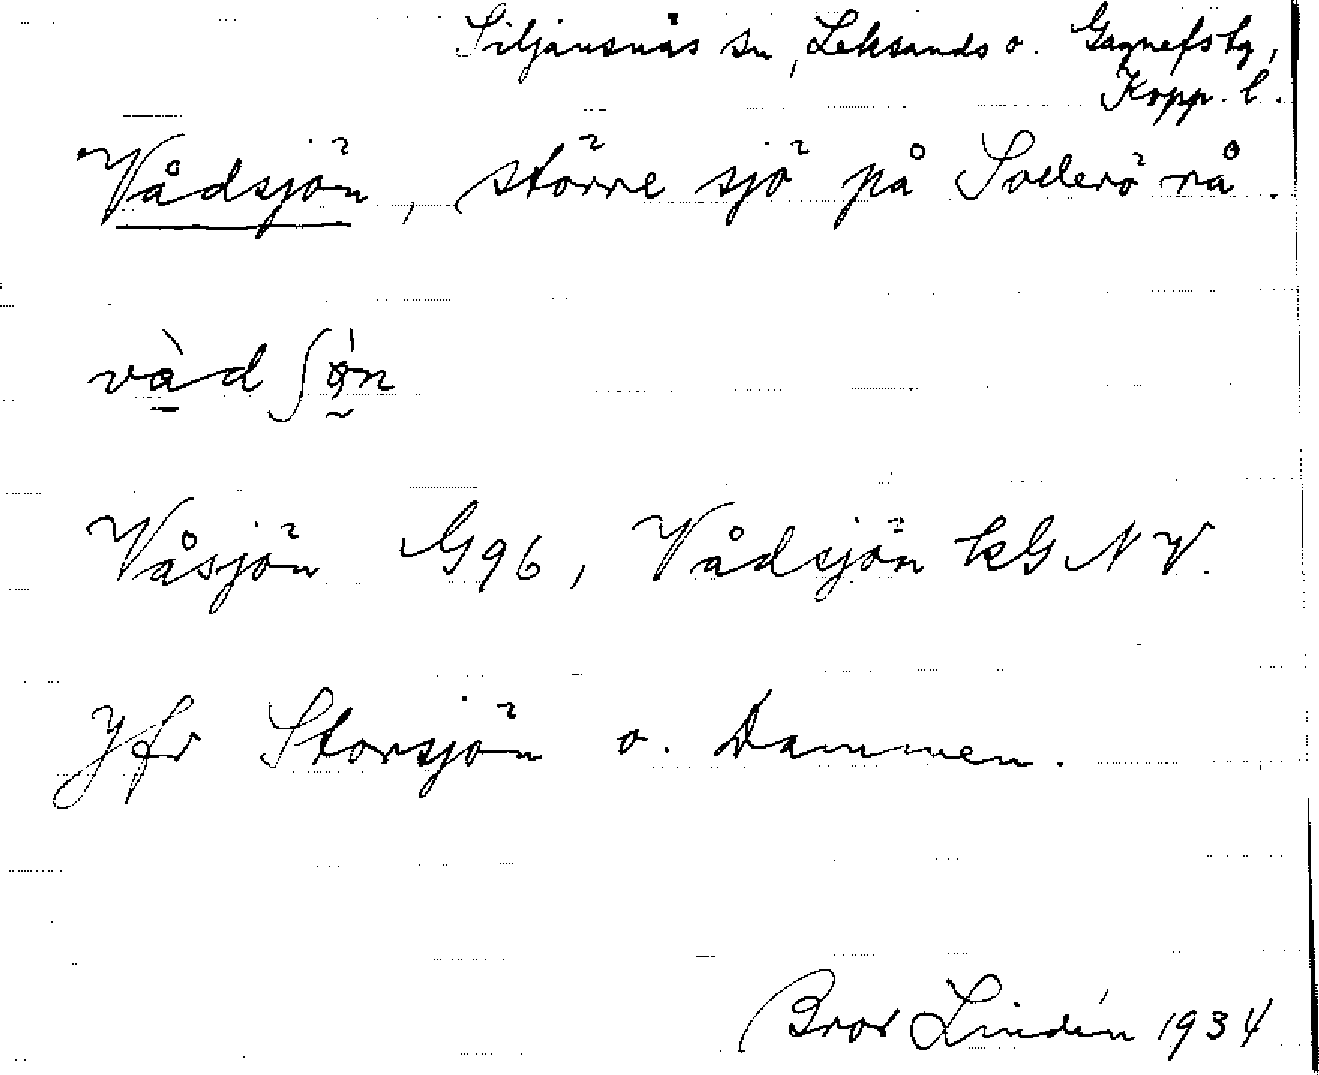 Siljansnäs sn, Leksands o. Gagnefs tg,
Kopp. l.
Vådsjön, större sjö på Sollerö rå.
Våsjön G96, Vådsjön kG NV.
Jfr Storsjön o. Dammen.
Bror Lindén 1934